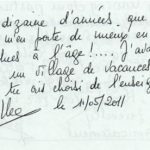 dizaine d'années, que
m'en porte de mieux en
à l'âge!.... J'ava
un village de vacances
tu ais choisi de l'enseig
le 11/05/2011